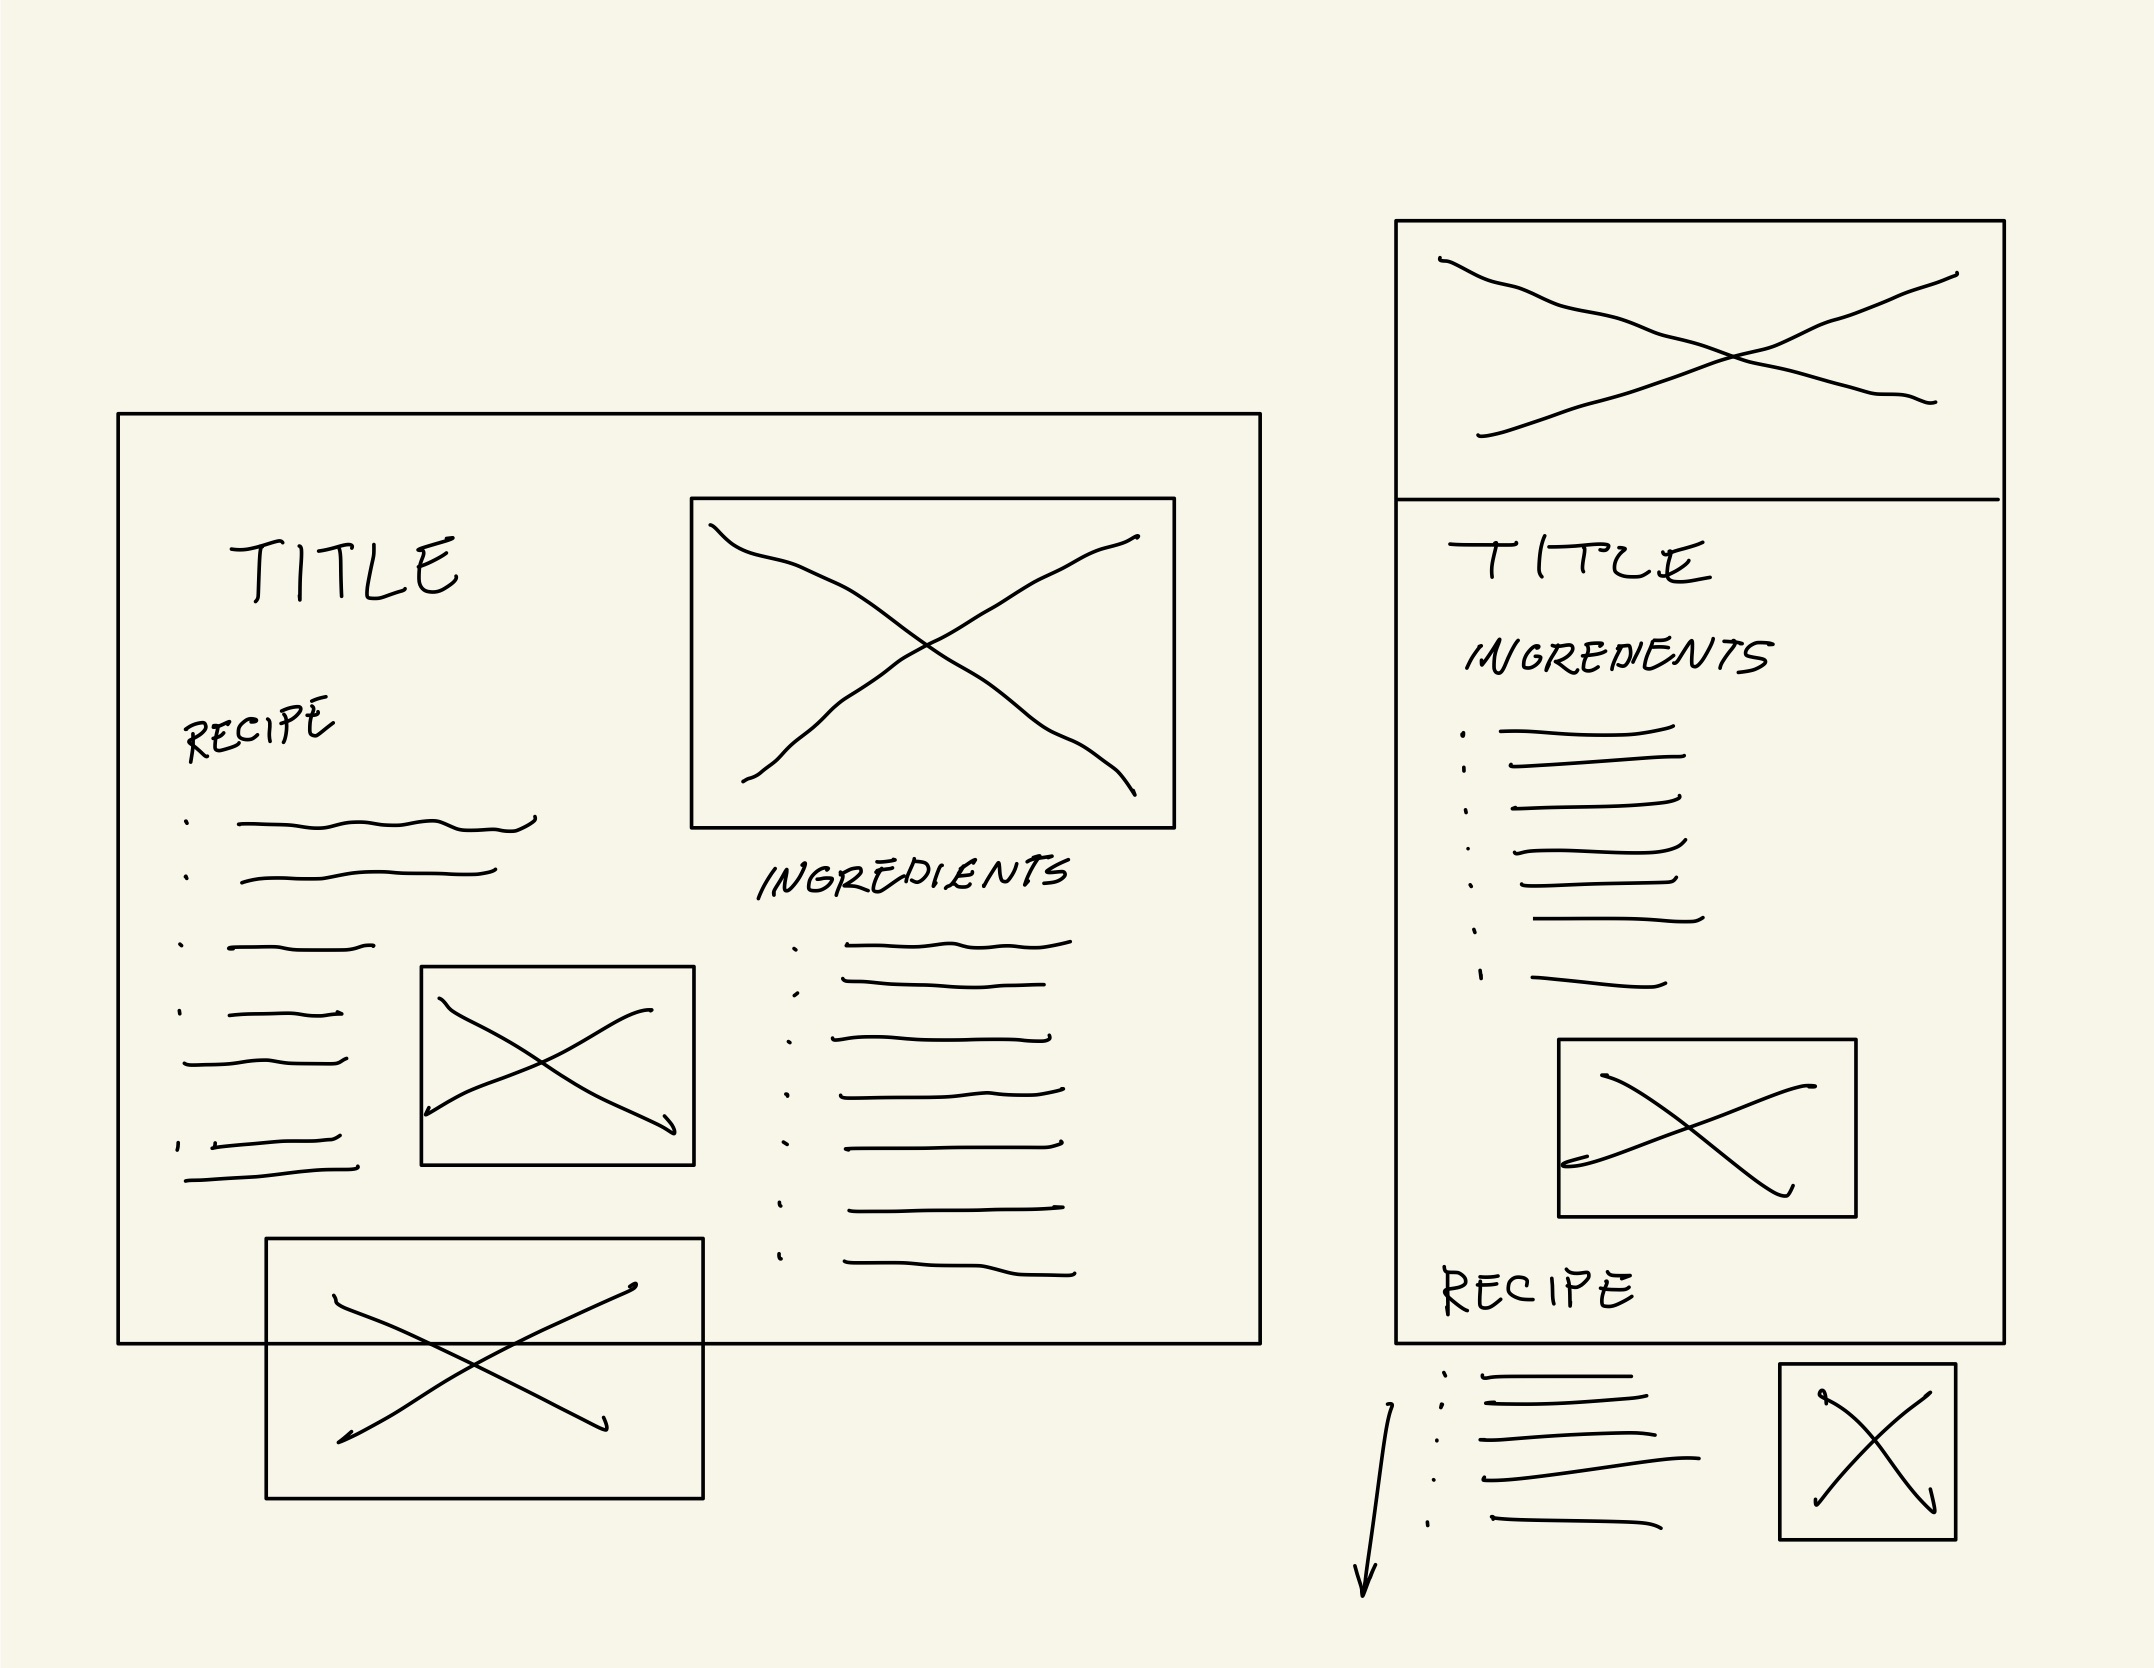 TITLE
RECIPE
INGREDIENTS
TITLE
INGREDIENTS
RECIPE